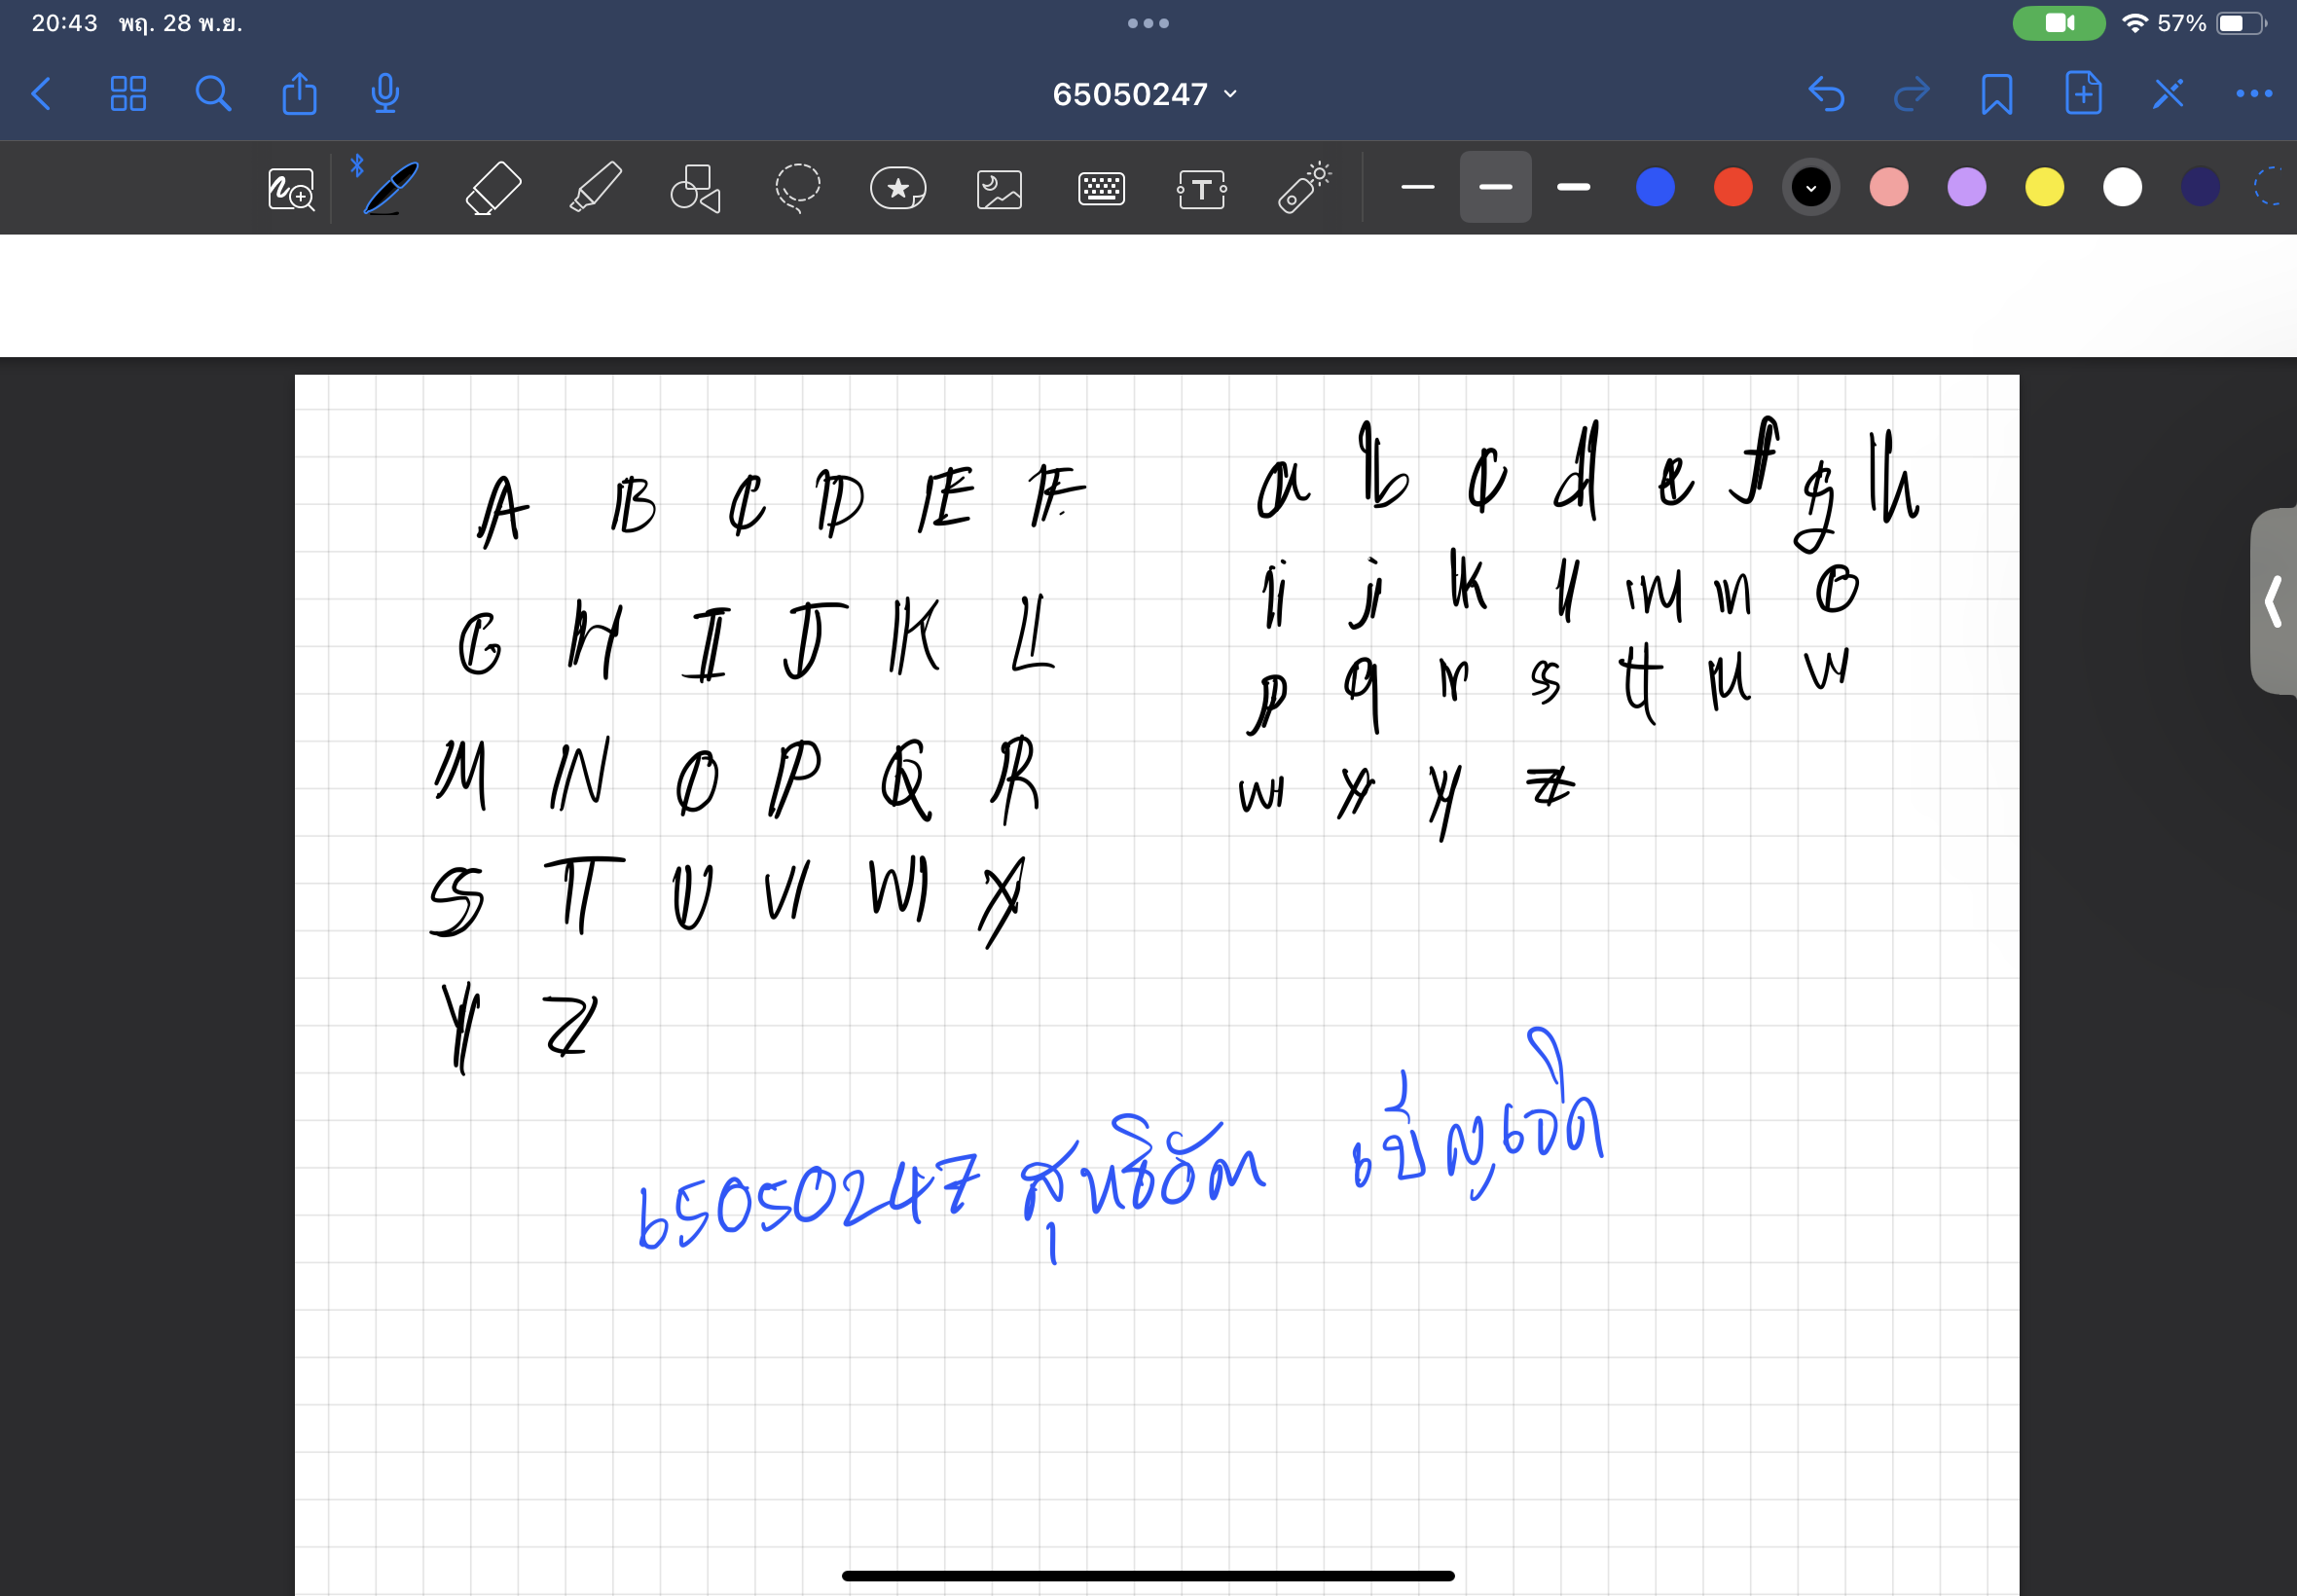 20:43 พฤ. 28 พ.ย. 57%
65050247
A B C D E F
G H I J K L
M N O P Q R
S T U V W X
Y Z
a b c d e f g h
i j k l m n o
p q r s t u v
w x y z
65050247